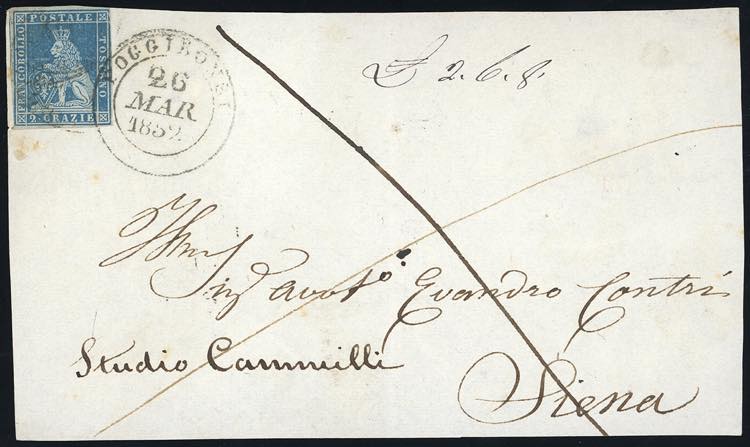 FRANCOBOLLO
POSTALE
TOSCANO
2. GRAZIE
POGGIBONSI
26
MAR
1852
£ 2.6.8.
Sig.
avvto. Evandro Contri
Studio Cammilli
Siena